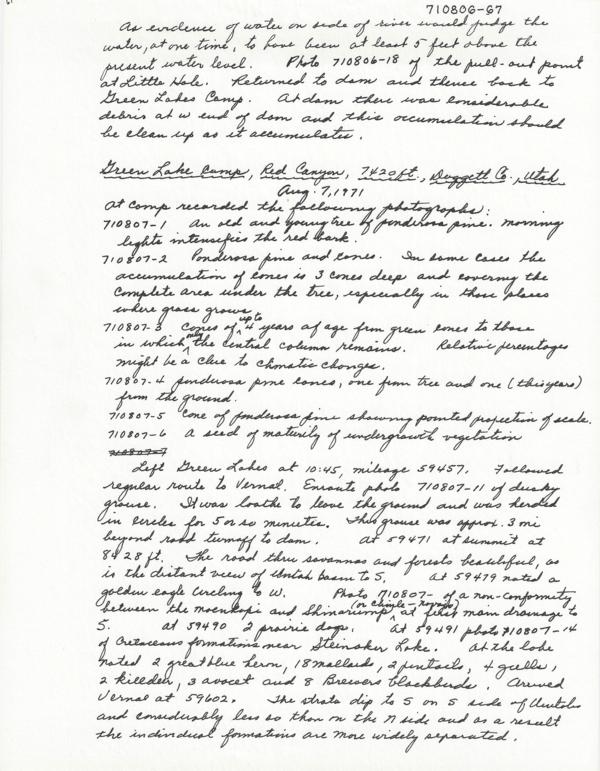 710806-67
As evidence of water on side of river would judge the
water, at one time, to have been at least 5 feet above the
present water level. Photo 710806-18 of the pull-out point
at Little Hole. Returned to dam and thence back to
Green Lakes Camp. At dam there was considerable
debris at W end of dam and this accumulation should
be clean up as it accumulates.
Green Lake Camp, Red Canyon, 7420 ft., Daggett Co., Utah
Aug. 7, 1971
At camp recorded the following photographs:
710807-1 An old and young tree of ponderosa pine. Morning
lights intensifies the red bark.
710807-2 Ponderosa pine and cones. In some cases the
accumulation of cones is 3 cones deep and covering the
complete area under the tree, especially in those places
where grass grows.
710807-3 Cones of up to 4 years of age from green cones to those
in which only the central column remains. Relative percentages
might be a clue to climatic changes.
710807-4 ponderosa pine cones, one from tree and one (this years)
from the ground.
710807-5 Cone of ponderosa pine showing pointed projection of scale.
710807-6 A seed of maturity of undergrowth vegetation
710807-7
Left Green Lakes at 10:45, mileage 59457. Followed
regular route to Vernal. Enroute photo 710807-11 of dusky
grouse. It was loathe to leave the ground and was herded
in circles for 5 or so minutes. This grouse was approx. 3 mi
beyond road turnoff to dam. At 59471 at summit at
8428 ft. The road thru savannas and forests beautiful, as
is the distant view of Uintah basin to S. At 59479 noted a
golden eagle circling to W. Photo 710807- of a non-conformity
between the Moenkopi and Shinarump (or Chinle-Navajo) at first main drainage to
S. At 59490 2 prairie dogs. At 59491 photo 710807-14
of Cretaceous formations near Steinaker Lake. At the lake
noted 2 great blue heron, 18 mallards, 2 pintails, 4 gulls,
2 killdeer, 3 avocet and 8 Brewers blackbirds. Arrived
Vernal at 59602. The strata dip to S on S side of Uintahs
and considerably less so than on the N side and as a result
the individual formations are more widely separated.